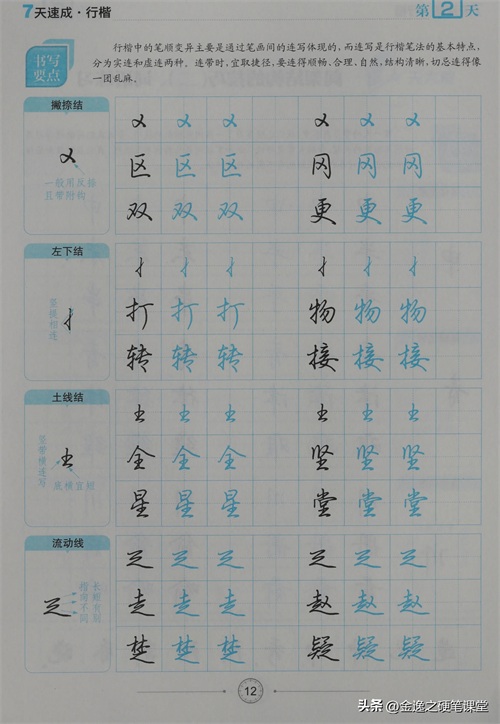 7天速成·行楷
第2天
书写
要点
行楷中的笔顺变异主要是通过笔画间的连写体现的,而连写是行楷笔法的基本特点,
分为实连和虚连两种。连带时,宜取捷径,要连得顺畅、合理、自然,结构清晰,切忌连得像
一团乱麻。
撇捺结
一般用反捺
且带附钩
区 区 区 网 网 网
双 双 双 更 更 更
左下结
竖提相连
打 打 打 物 物 物
转 转 转 接 接 接
土线结
竖带横连写
底横宜短
土 土 土 土 土 土
全 全 全 坚 坚 坚
星 星 星 堂 堂 堂
流动线
长短有别
指向不同
走 走 走 赵 赵 赵
楚 楚 楚 疑 疑 疑
12
头条 @金逸之硬笔课堂